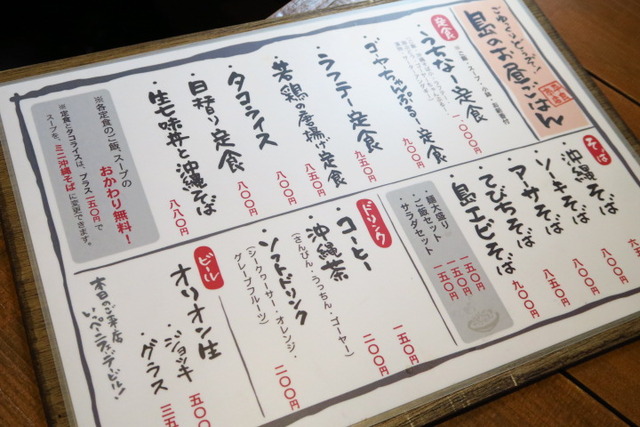 ごゆっくりどうぞ!
島のお昼ごはん
定食
・うちなー定食
一、〇〇〇円
・ゴーヤちゃんぷるー定食
九〇〇円
・ラフテー定食
九五〇円
・若鶏の唐揚げ定食
八〇〇円
・タコライス
八〇〇円
・日替り定食
・生七味丼と沖縄そば
八八〇円
※各定食のご飯、スープの
おかわり無料!
※定食とタコライスは、プラス一五〇円で
スープを、ミニ沖縄そばに変更できます。
そば
・沖縄そば
・ソーキそば
・アーサそば
八五〇円
・てびちそば
八〇〇円
・島エビそば
九〇〇円
麺大盛り
一五〇円
ご飯セット
一五〇円
サラダセット
一五〇円
ドリンク
・コーヒー
一五〇円
・沖縄茶
(さんぴん・うっちん・ゴーヤー)
二〇〇円
・ソフトドリンク
(シークヮーサー・オレンジ・
グレープフルーツ)
二〇〇円
ビール
オリオン生
・ジョッキ
五〇〇
・グラス
三五
本日のご来店
いっぺーにふぇーでーびる!